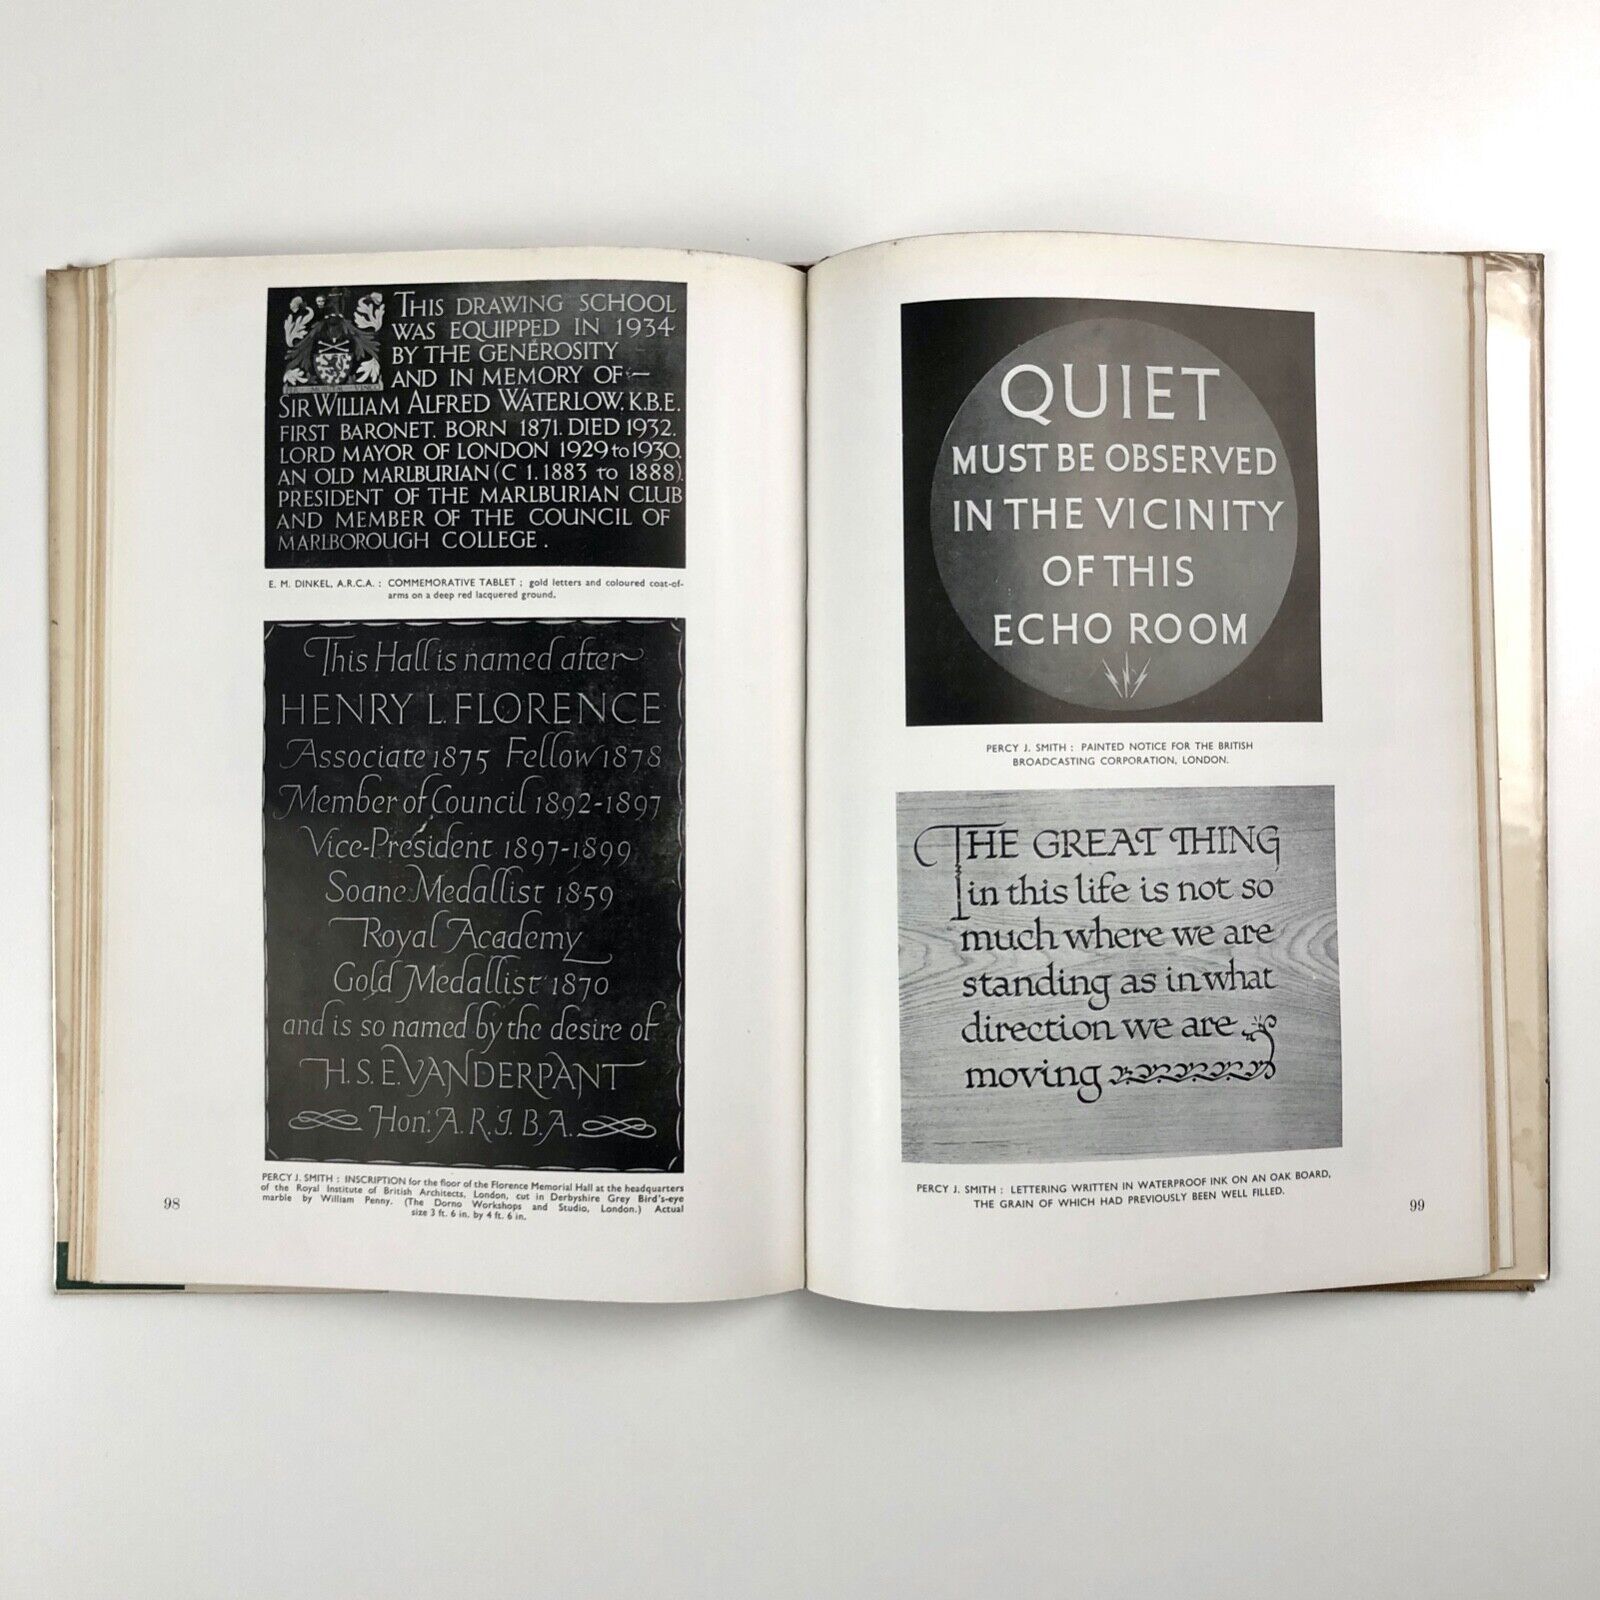 THIS DRAWING SCHOOL
WAS EQUIPPED IN 1934
BY THE GENEROSITY
AND IN MEMORY OF —
SIR WILLIAM ALFRED WATERLOW, K.B.E.
FIRST BARONET. BORN 1871. DIED 1932.
LORD MAYOR OF LONDON 1929 to 1930.
AN OLD MARLBURIAN (C 1. 1883 to 1888).
PRESIDENT OF THE MARLBURIAN CLUB
AND MEMBER OF THE COUNCIL OF
MARLBOROUGH COLLEGE.
E. M. DINKEL, A.R.C.A. : COMMEMORATIVE TABLET ; gold letters and coloured coat-of-
arms on a deep red lacquered ground.
This Hall is named after
HENRY L. FLORENCE
Associate 1875 Fellow 1878
Member of Council 1892-1897
Vice-President 1897-1899
Soane Medallist 1859
Royal Academy
Gold Medallist 1870
and is so named by the desire of
H. S. E. VANDERPANT
Hon: A. R. I. B. A.
PERCY J. SMITH : INSCRIPTION for the floor of the Florence Memorial Hall at the headquarters
of the Royal Institute of British Architects, London, cut in Derbyshire Grey Bird's-eye
marble by William Penny. (The Dorno Workshops and Studio, London.) Actual
size 3 ft. 6 in. by 4 ft. 6 in.
98
QUIET
MUST BE OBSERVED
IN THE VICINITY
OF THIS
ECHO ROOM
PERCY J. SMITH : PAINTED NOTICE FOR THE BRITISH
BROADCASTING CORPORATION, LONDON.
THE GREAT THING
in this life is not so
much where we are
standing as in what
direction we are
moving
PERCY J. SMITH : LETTERING WRITTEN IN WATERPROOF INK ON AN OAK BOARD,
THE GRAIN OF WHICH HAD PREVIOUSLY BEEN WELL FILLED.
99